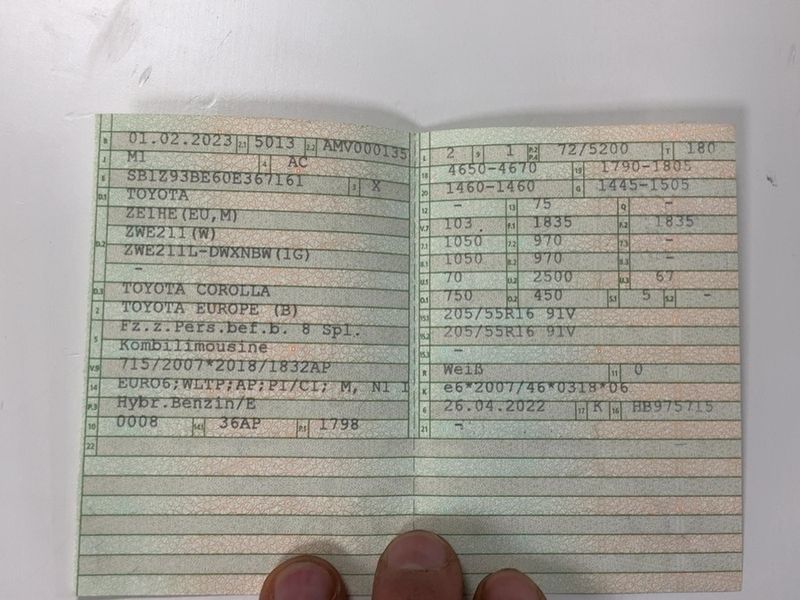 B 01.02.2023 2.1 5013 2.2 AMV000135
J M1 4 AC
E SB1Z93BE60E367161 3 X
D.1 TOYOTA
ZE1HE(EU,M)
ZWE211(W)
D.2 ZWE211L-DWXNBW(1G)
-
D.3 TOYOTA COROLLA
2 TOYOTA EUROPE (B)
5 Fz.z.Pers.bef.b. 8 Spl.
Kombilimousine
V.9 715/2007*2018/1832AP
14 EURO6;WLTP;AP;PI/CI; M, N1 I
P.3 Hybr.Benzin/E
10 0008 14.1 36AP P.1 1798
22
L 2 9 1 P.2 P.4 72/5200 T 180
18 4650-4670 19 1790-1805
20 1460-1460 G 1445-1505
12 - 13 75 Q -
V.7 103. F.1 1835 F.2 1835
7.1 1050 7.2 970 7.3 -
8.1 1050 8.2 970 8.3 -
U.1 70 U.2 2500 U.3 67
O.1 750 O.2 450 S.1 5 S.2 -
15.1 205/55R16 91V
15.2 205/55R16 91V
15.3 -
R Weiß 11 0
K e6*2007/46*0318*06
6 26.04.2022 17 K 16 HB975715
21 -